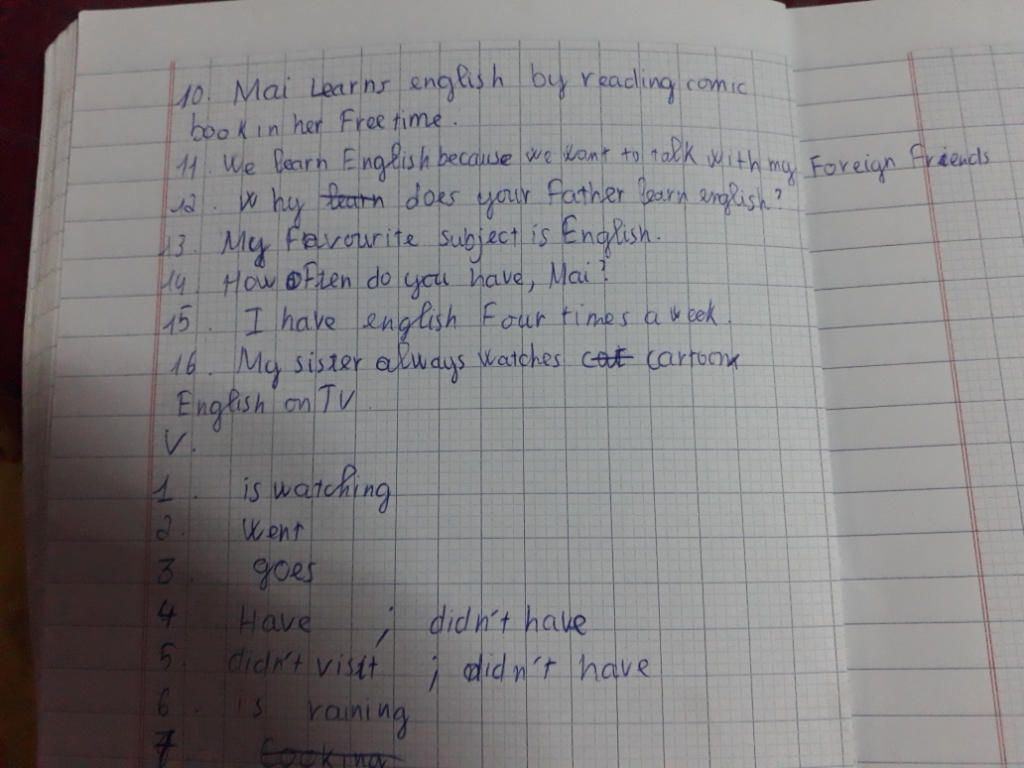 10. Mai Learns english by reading comic
book in her Free time.
11. We learn English because we want to talk with my Foreign Friends
12. Why learn does your Father learn english?
13. My Favourite subject is English.
14. How oFten do you have, Mai?
15. I have english Four times a week.
16. My sister always watches cat cartoon
English on TV.
V.
1. is watching
2. went
3. goes
4 Have ; didn't have
5 didn't visit ; didn't have
6. is raining
7 Cooking